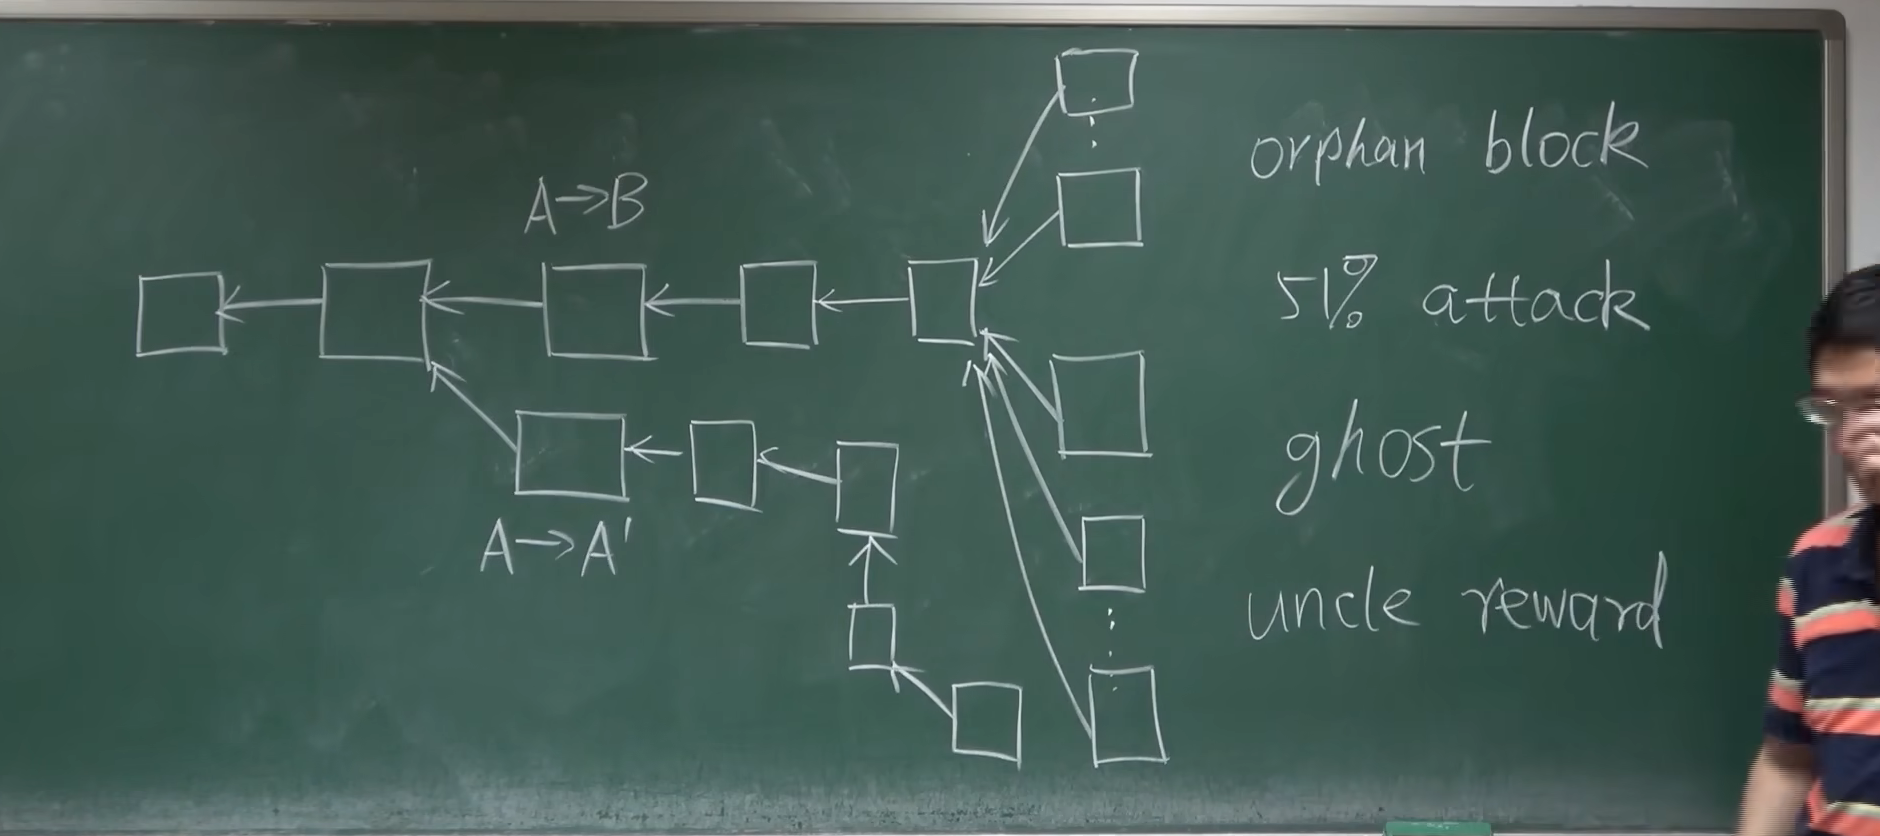 A→B
A→A'
orphan block
51% attack
ghost
uncle reward